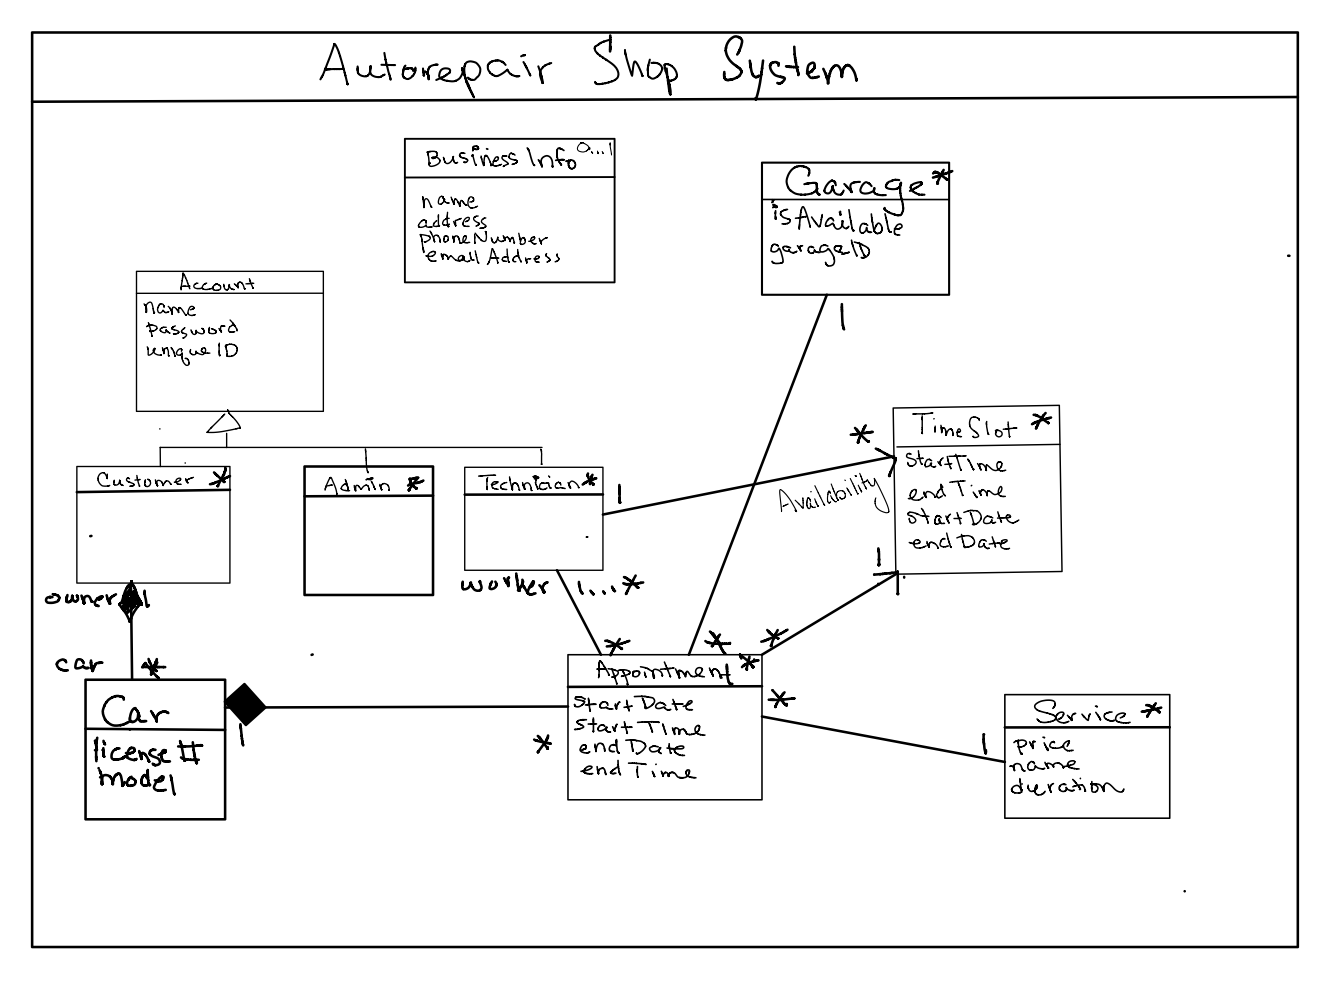 Autorepair Shop System
Business Info 0...1
name
address
phoneNumber
email Address
Garage *
isAvailable
garageID
1
Account
name
password
uniqueID
Customer *
Admin *
Technician *
1
*
Availability
TimeSlot *
startTime
endTime
startDate
endDate
1
owner 1
worker 1...*
*
*
*
car *
Car
license #
model
1
*
Appointment *
startDate
start Time
endDate
endTime
*
1
Service *
price
name
duration